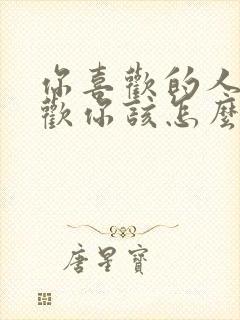 你喜歡的人
歡你該怎麼
唐星寶